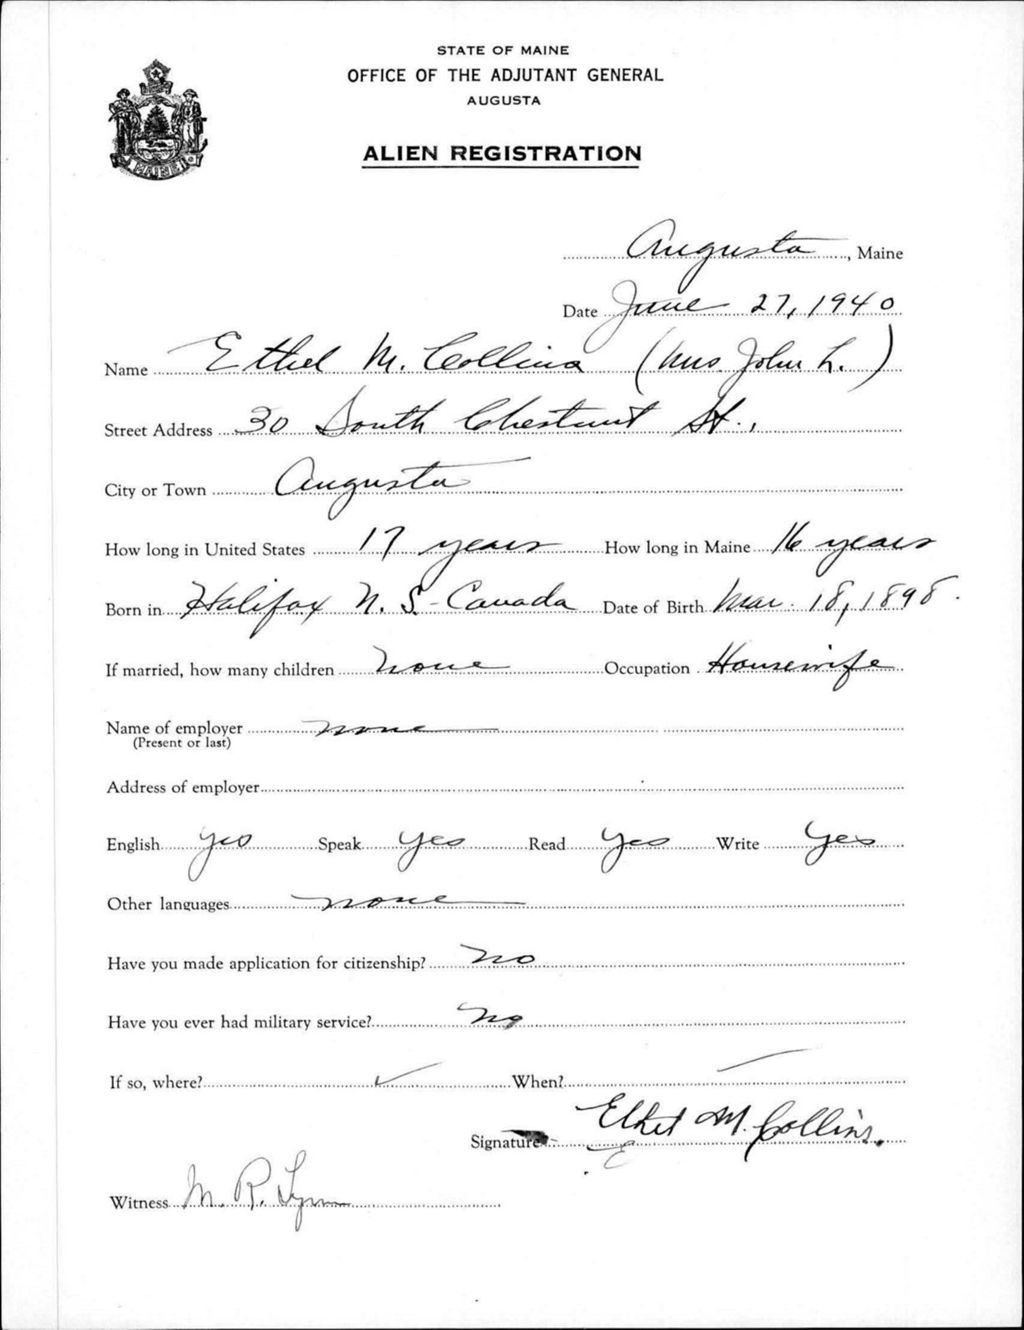 STATE OF MAINE
OFFICE OF THE ADJUTANT GENERAL
AUGUSTA
ALIEN REGISTRATION
MAINE
Augusta, Maine
Date June 27, 1940
Name Ethel M. Collins (Mrs. John L.)
Street Address 30 South Chestnut St.,
City or Town Augusta
How long in United States 17 years How long in Maine 16 years
Born in Halifax N. S. - Canada Date of Birth Mar. 18, 1898.
If married, how many children none Occupation Housewife
Name of employer none
(Present or last)
Address of employer
English yes Speak yes Read yes Write yes
Other languages none
Have you made application for citizenship? no
Have you ever had military service? no
If so, where? ✓ When? —
Signature Ethel M. Collins.
Witness M. R. Lynn